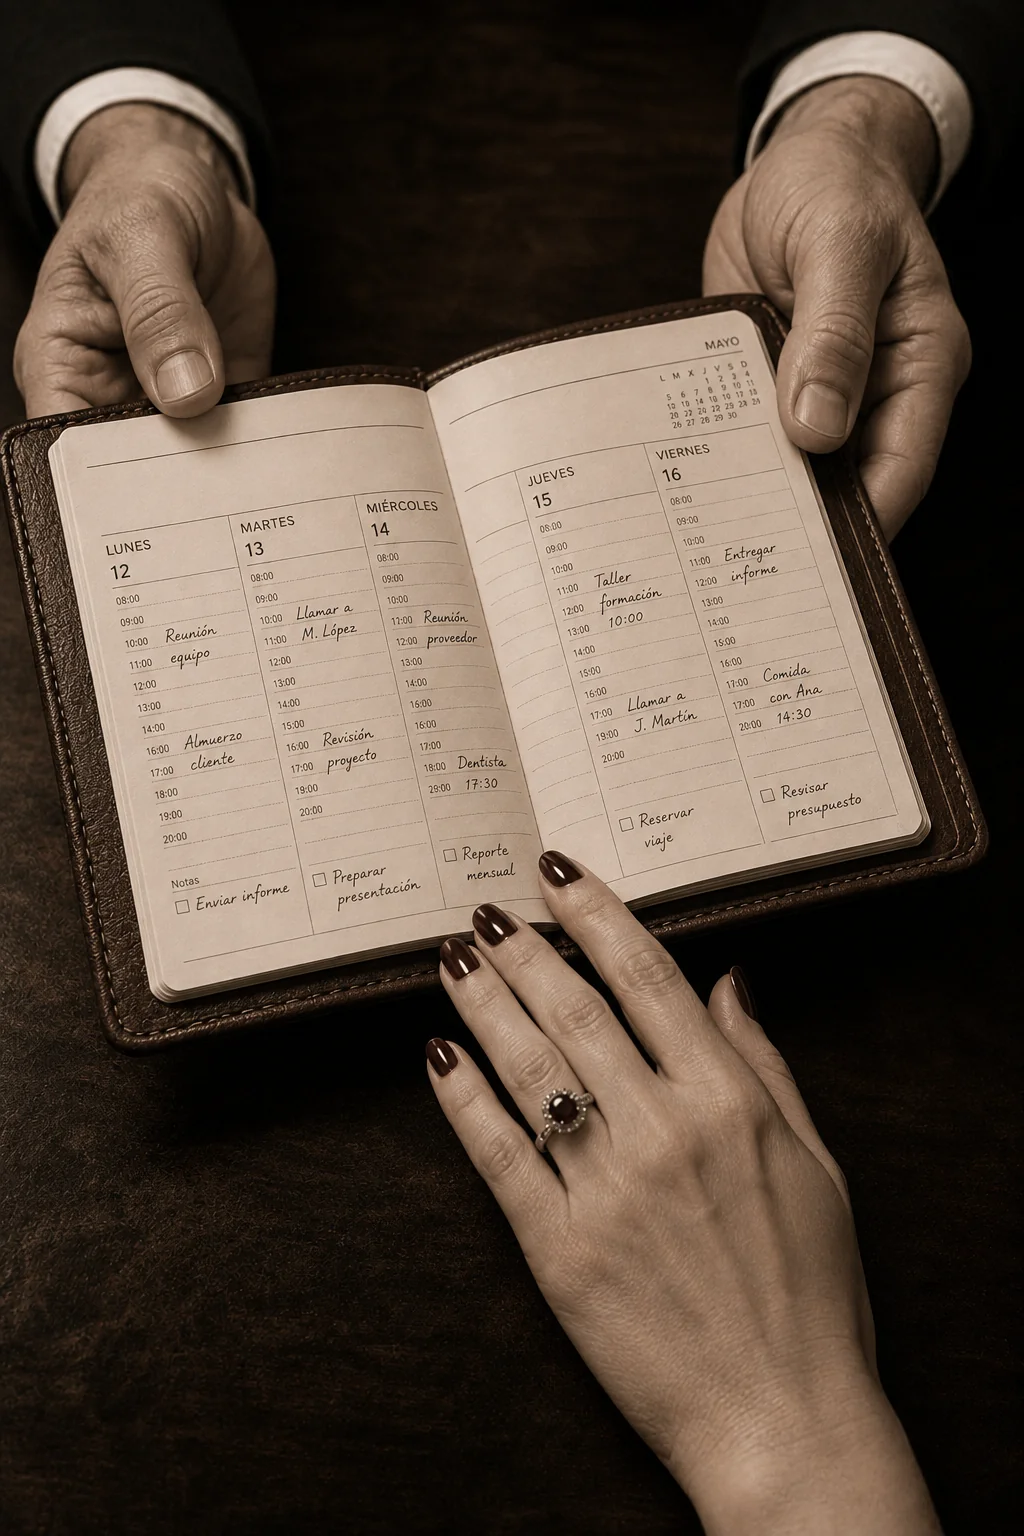 MAYO
L M X J V S D
1 2 3 4
5 6 7 8 9 10 11
26 27 28 29 30
LUNES
12
08:00
09:00
10:00 Reunión
11:00 equipo
12:00
13:00
14:00
16:00 Almuerzo
17:00 cliente
18:00
19:00
20:00
Notas
Enviar informe
MARTES
13
08:00
09:00
10:00 Llamar a
11:00 M. López
12:00
13:00
14:00
15:00
16:00 Revisión
17:00 proyecto
19:00
20:00
Preparar
presentación
MIÉRCOLES
14
08:00
09:00
10:00
Reunión
12:00 proveedor
13:00
14:00
16:00
16:00
17:00
18:00 Dentista
17:30
Reporte
mensual
JUEVES
15
08:00
09:00
10:00
11:00 Taller
12:00 formación
13:00 10:00
14:00
15:00
16:00
17:00 Llamar a
19:00 J. Martín
20:00
Reservar
viaje
VIERNES
16
08:00
09:00
10:00
11:00 Entregar
12:00 informe
13:00
14:00
15:00
16:00
17:00 Comida
17:00 con Ana
20:00 14:30
presupuesto